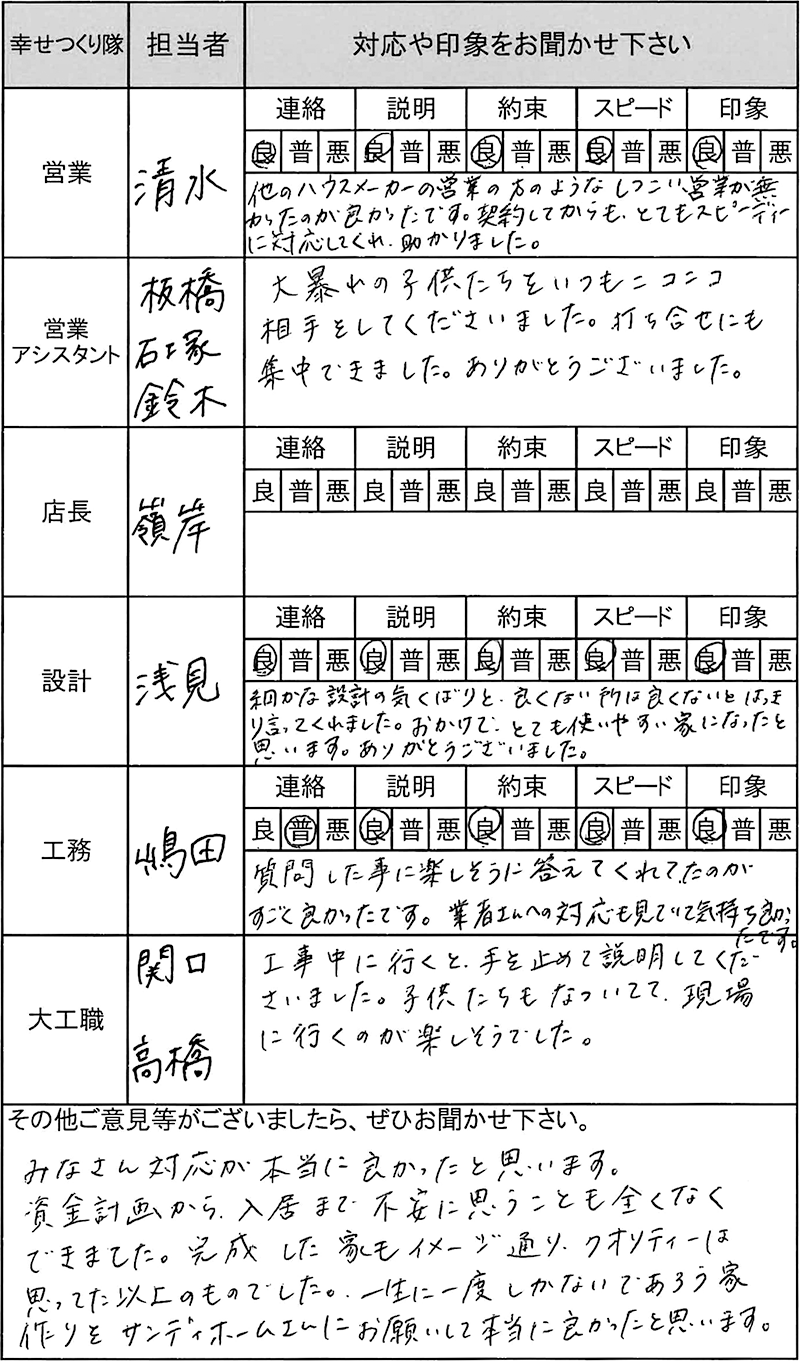 幸せつくり隊 担当者 対応や印象をお聞かせ下さい
営業 清水
連絡 説明 約束 スピード 印象
良 普 悪 良 普 悪 良 普 悪 良 普 悪 良 普 悪
他のハウスメーカーの営業の方のようなしつこい営業が無
かったのが良かったです。契約してからも、とてもスピーディー
に対応してくれ、助かりました。
営業
アシスタント
板橋
石塚
鈴木
大暴れの子供たちをいつもニコニコ
相手をしてくださいました。打ち合せにも
集中できました。ありがとうございました。
店長 嶺岸
連絡 説明 約束 スピード 印象
良 普 悪 良 普 悪 良 普 悪 良 普 悪 良 普 悪
設計 浅見
連絡 説明 約束 スピード 印象
良 普 悪 良 普 悪 良 普 悪 良 普 悪 良 普 悪
細かな設計の気くばりと、良くない所は良くないとはっき
り言ってくれました。おかげで、とても使いやすい家になったと
思います。ありがとうございました。
工務 嶋田
連絡 説明 約束 スピード 印象
良 普 悪 良 普 悪 良 普 悪 良 普 悪 良 普 悪
質問した事に楽しそうに答えてくれてたのが
すごく良かったです。業者さんへの対応も見ていて気持ち良かっ
たです。
大工職
関口
高橋
工事中に行くと、手を止めて説明してくだ
さいました。子供たちもなついてて、現場
に行くのが楽しそうでした。
その他ご意見等がございましたら、ぜひお聞かせ下さい。
みなさん対応が本当に良かったと思います。
資金計画から、入居まで不安に思うことも全くなく
できました。完成した家もイメージ通り、クオリティーは
思ってた以上のものでした。一生に一度しかないであろう家
作りをサンディホームさんにお願いして本当に良かったと思います。